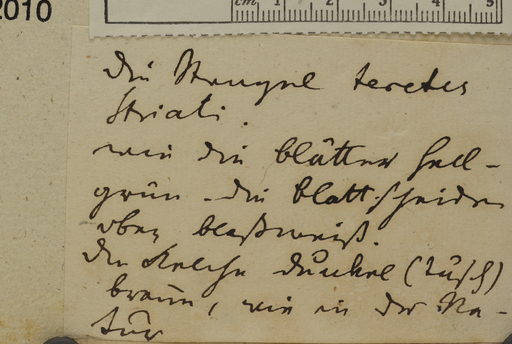 2010
cm 1 2 3 4 5
Die Stengel teretes
striati.
wie die blätter hell-
grün - die blattscheiden
oben blaßweiß.
Die Kelche dunkel (tusch)
braun, wie in der Na-
tur